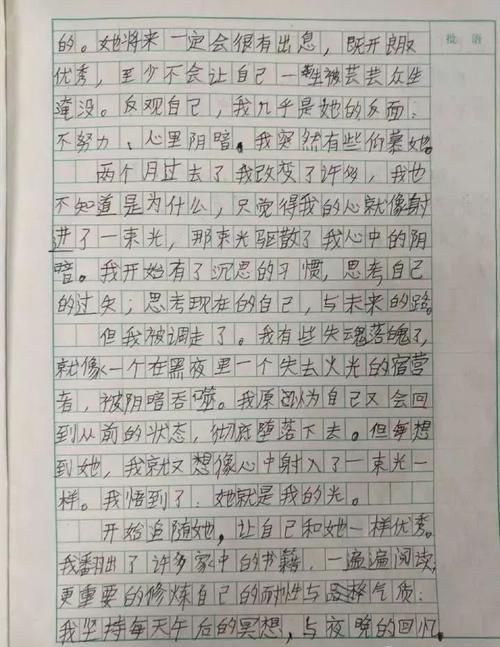 批 语
的。她将来一定会很有出息，既开朗又
优秀，至少不会让自己一生被芸芸众生
淹没。反观自己，我几乎是她的反面：
不努力、心里阴暗。我突然有些伯慕她。
两个月过去了我改变了许多，我也
不知道是为什么，只觉得我的心就像射
进了一束光，那束光驱散了我心中的阴
暗。我开始有了沉思的习惯，思考自己
的过失；思考现在的自己，与未来的路。
但我被调走了。我有些失魂落魄了，
就像一个在黑夜里一个失去火光的宿营
者，被阴暗吞噬。我原以为自己又会回
到从前的状态，彻底堕落下去。但每想
到她，我就又想像心中射入了一束光一
样。我悟到了：她就是我的光。
开始追随她，让自己和她一样优秀。
我翻出了许多家中的书籍，一遍遍阅读，
更重要的修炼自己的耐性与气质：
我坚持每天午后的冥想，与夜晚的回忆。